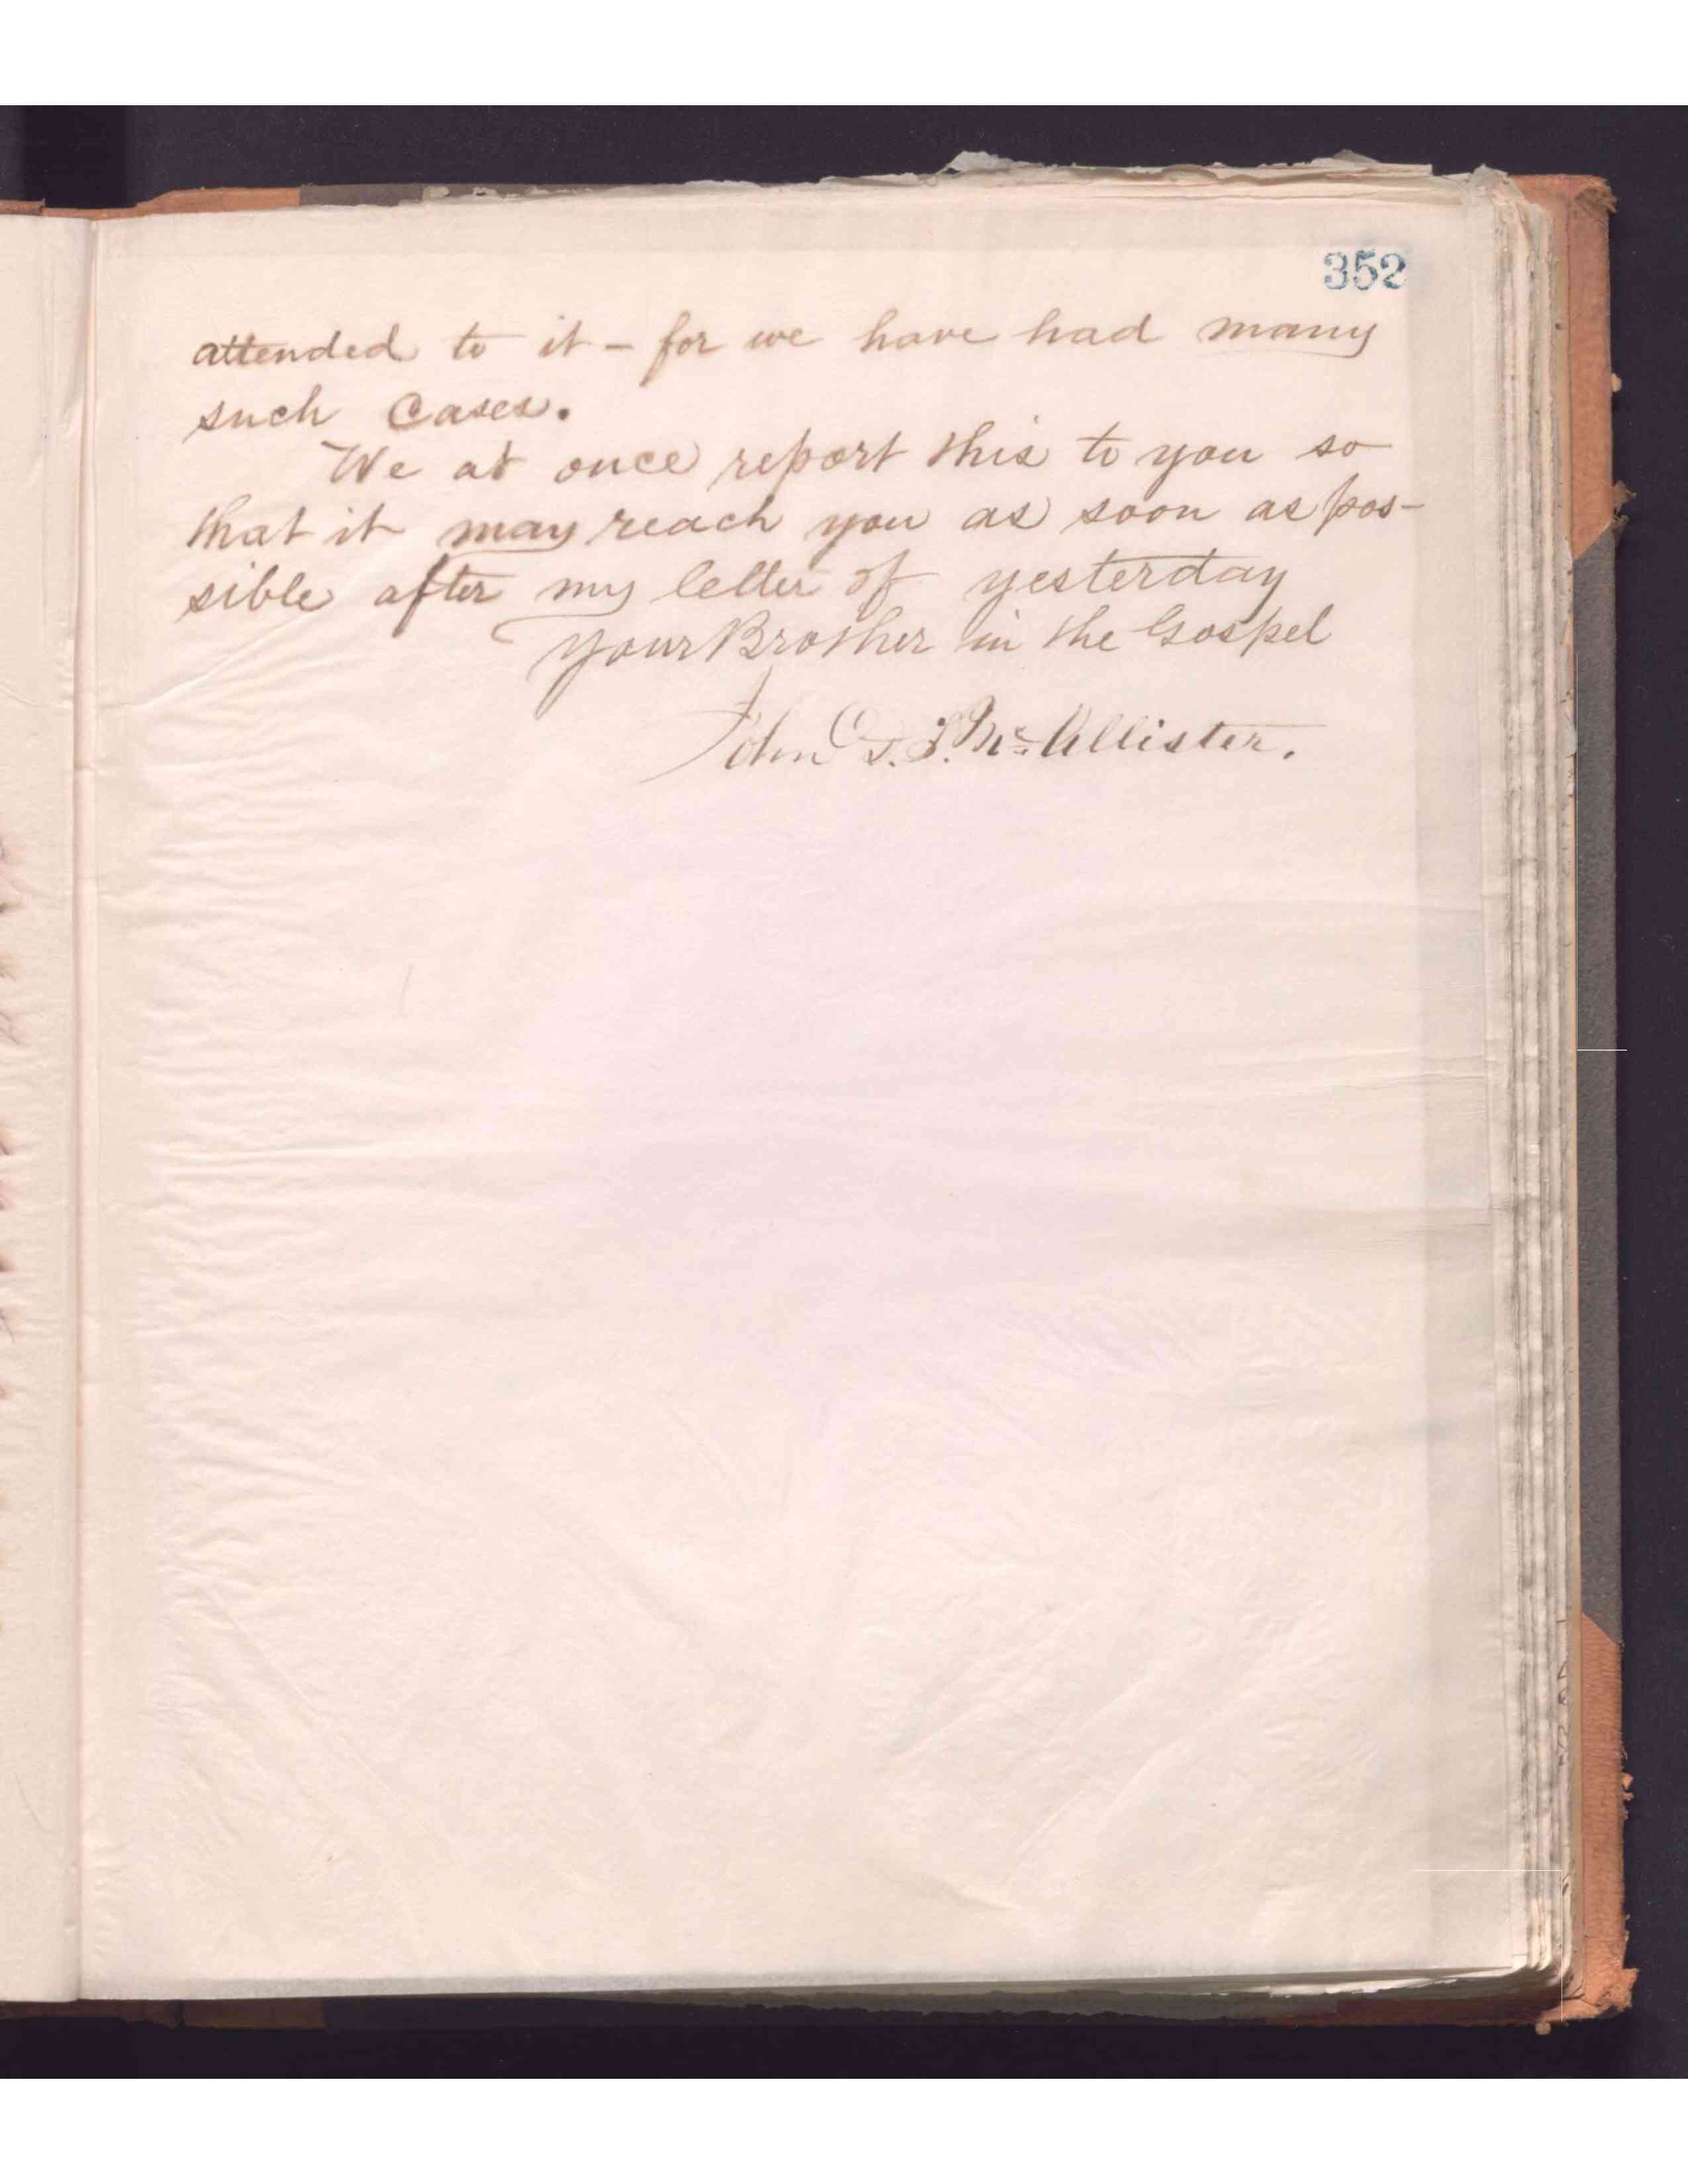 352
attended to it – for we have had many
such cases.
We at once report this to you so
that it may reach you as soon as pos-
sible after my letter of yesterday
Your Brother in the Gospel
John D. T. McAllister.